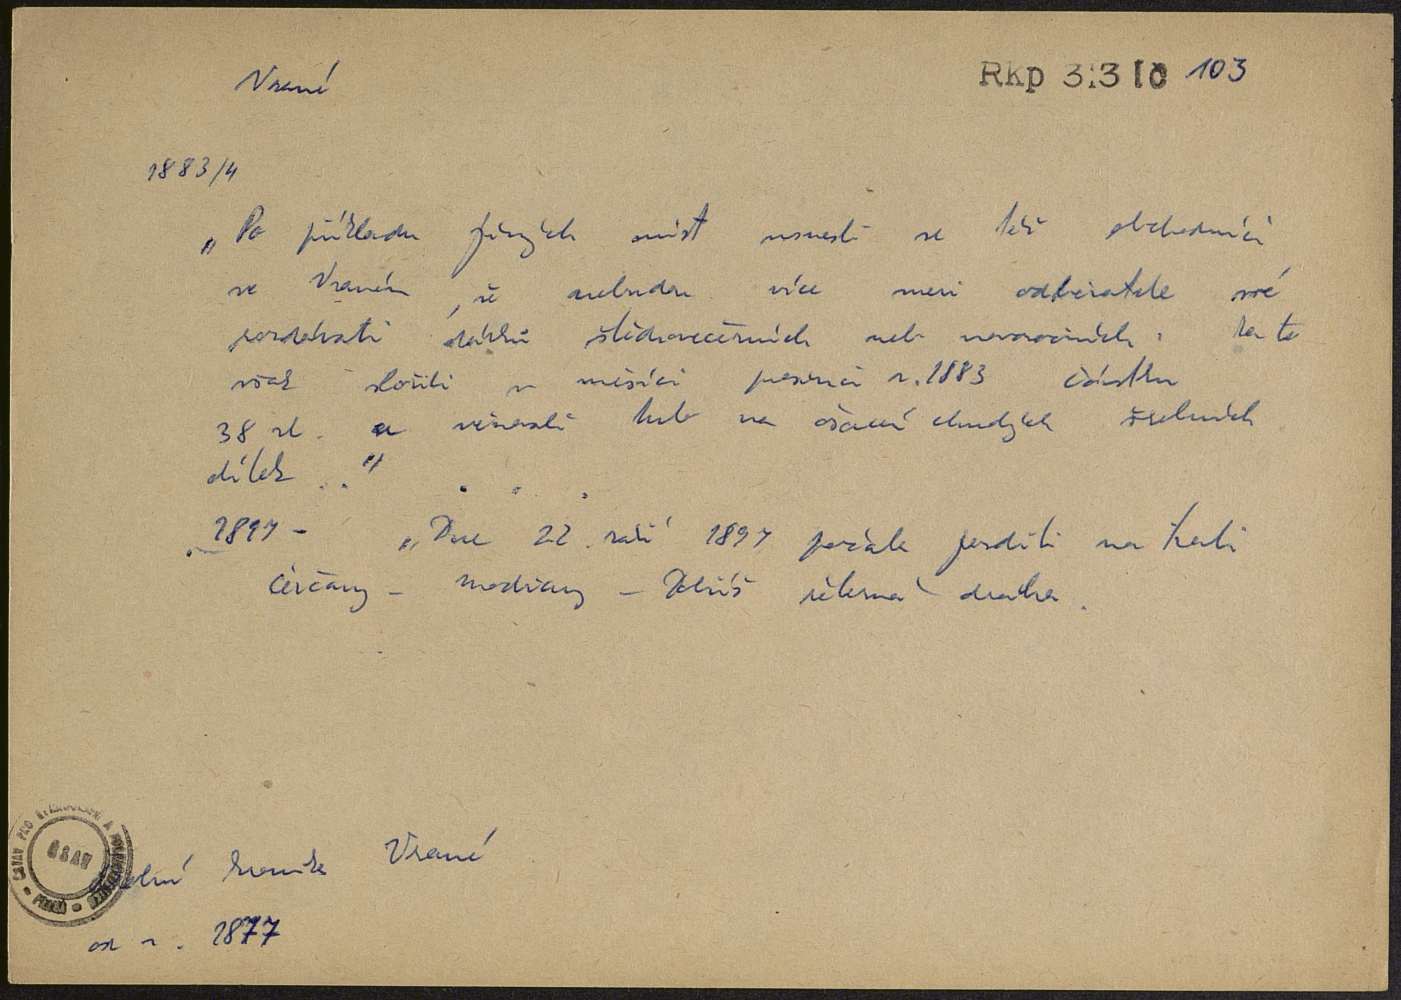 Vrané
Rkp 313 10 103
1883/4
„Po příkladu jiných míst usnesli se též obchodníci
ve Vraném, že nebudou více mezi odběratele své
rozdávati dárků štědrovečerních neb novoročních. Za to
však složili v měsíci prosinci r. 1883 částku
38 zl. a věnovali tuto na ošacení chudých školních
dítek ..“ . . .
1897 - „Dne 22. září 1897 počala jezditi na trati
Čerčany - Modřany - Dobříš železná dráha.
ÚSTAV PRO ETNOGRAFII A FOLKLORISTIKU
ČSAV
PRAHA
Školní kronika Vrané
od r. 1877